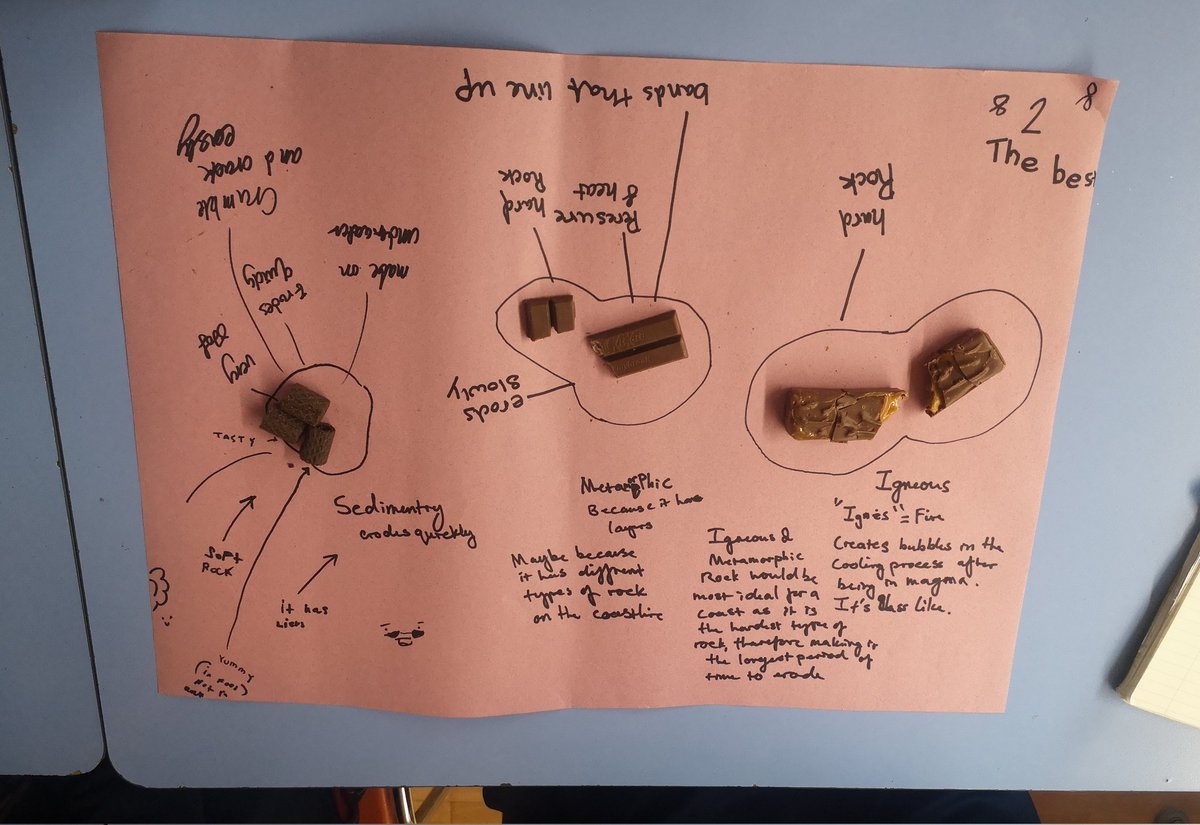 8 2 8
The best
bands that line up
Crumble
and crack
easly
made on
underwater
Erodes
quicly
very
TASTY
SOFT
ROCK
Yummy
Sedimentry
erodes quickly
it has
hard
Rock
Peresure
& heat
erods
slowly
Metamorphic
Because it has
layers
Maybe because
it has diffrent
types of rock
on the coastline
hard
Rock
Igneous &
Metamorphic
Rock would be
most ideal for a
coast as it is
the hardest type of
rock, therefore making it
the longest period of
time to erode
Igneous
"Ignés" = Fire
Creates bubbles in the
cooling process after
being in magma.
It's glass like.